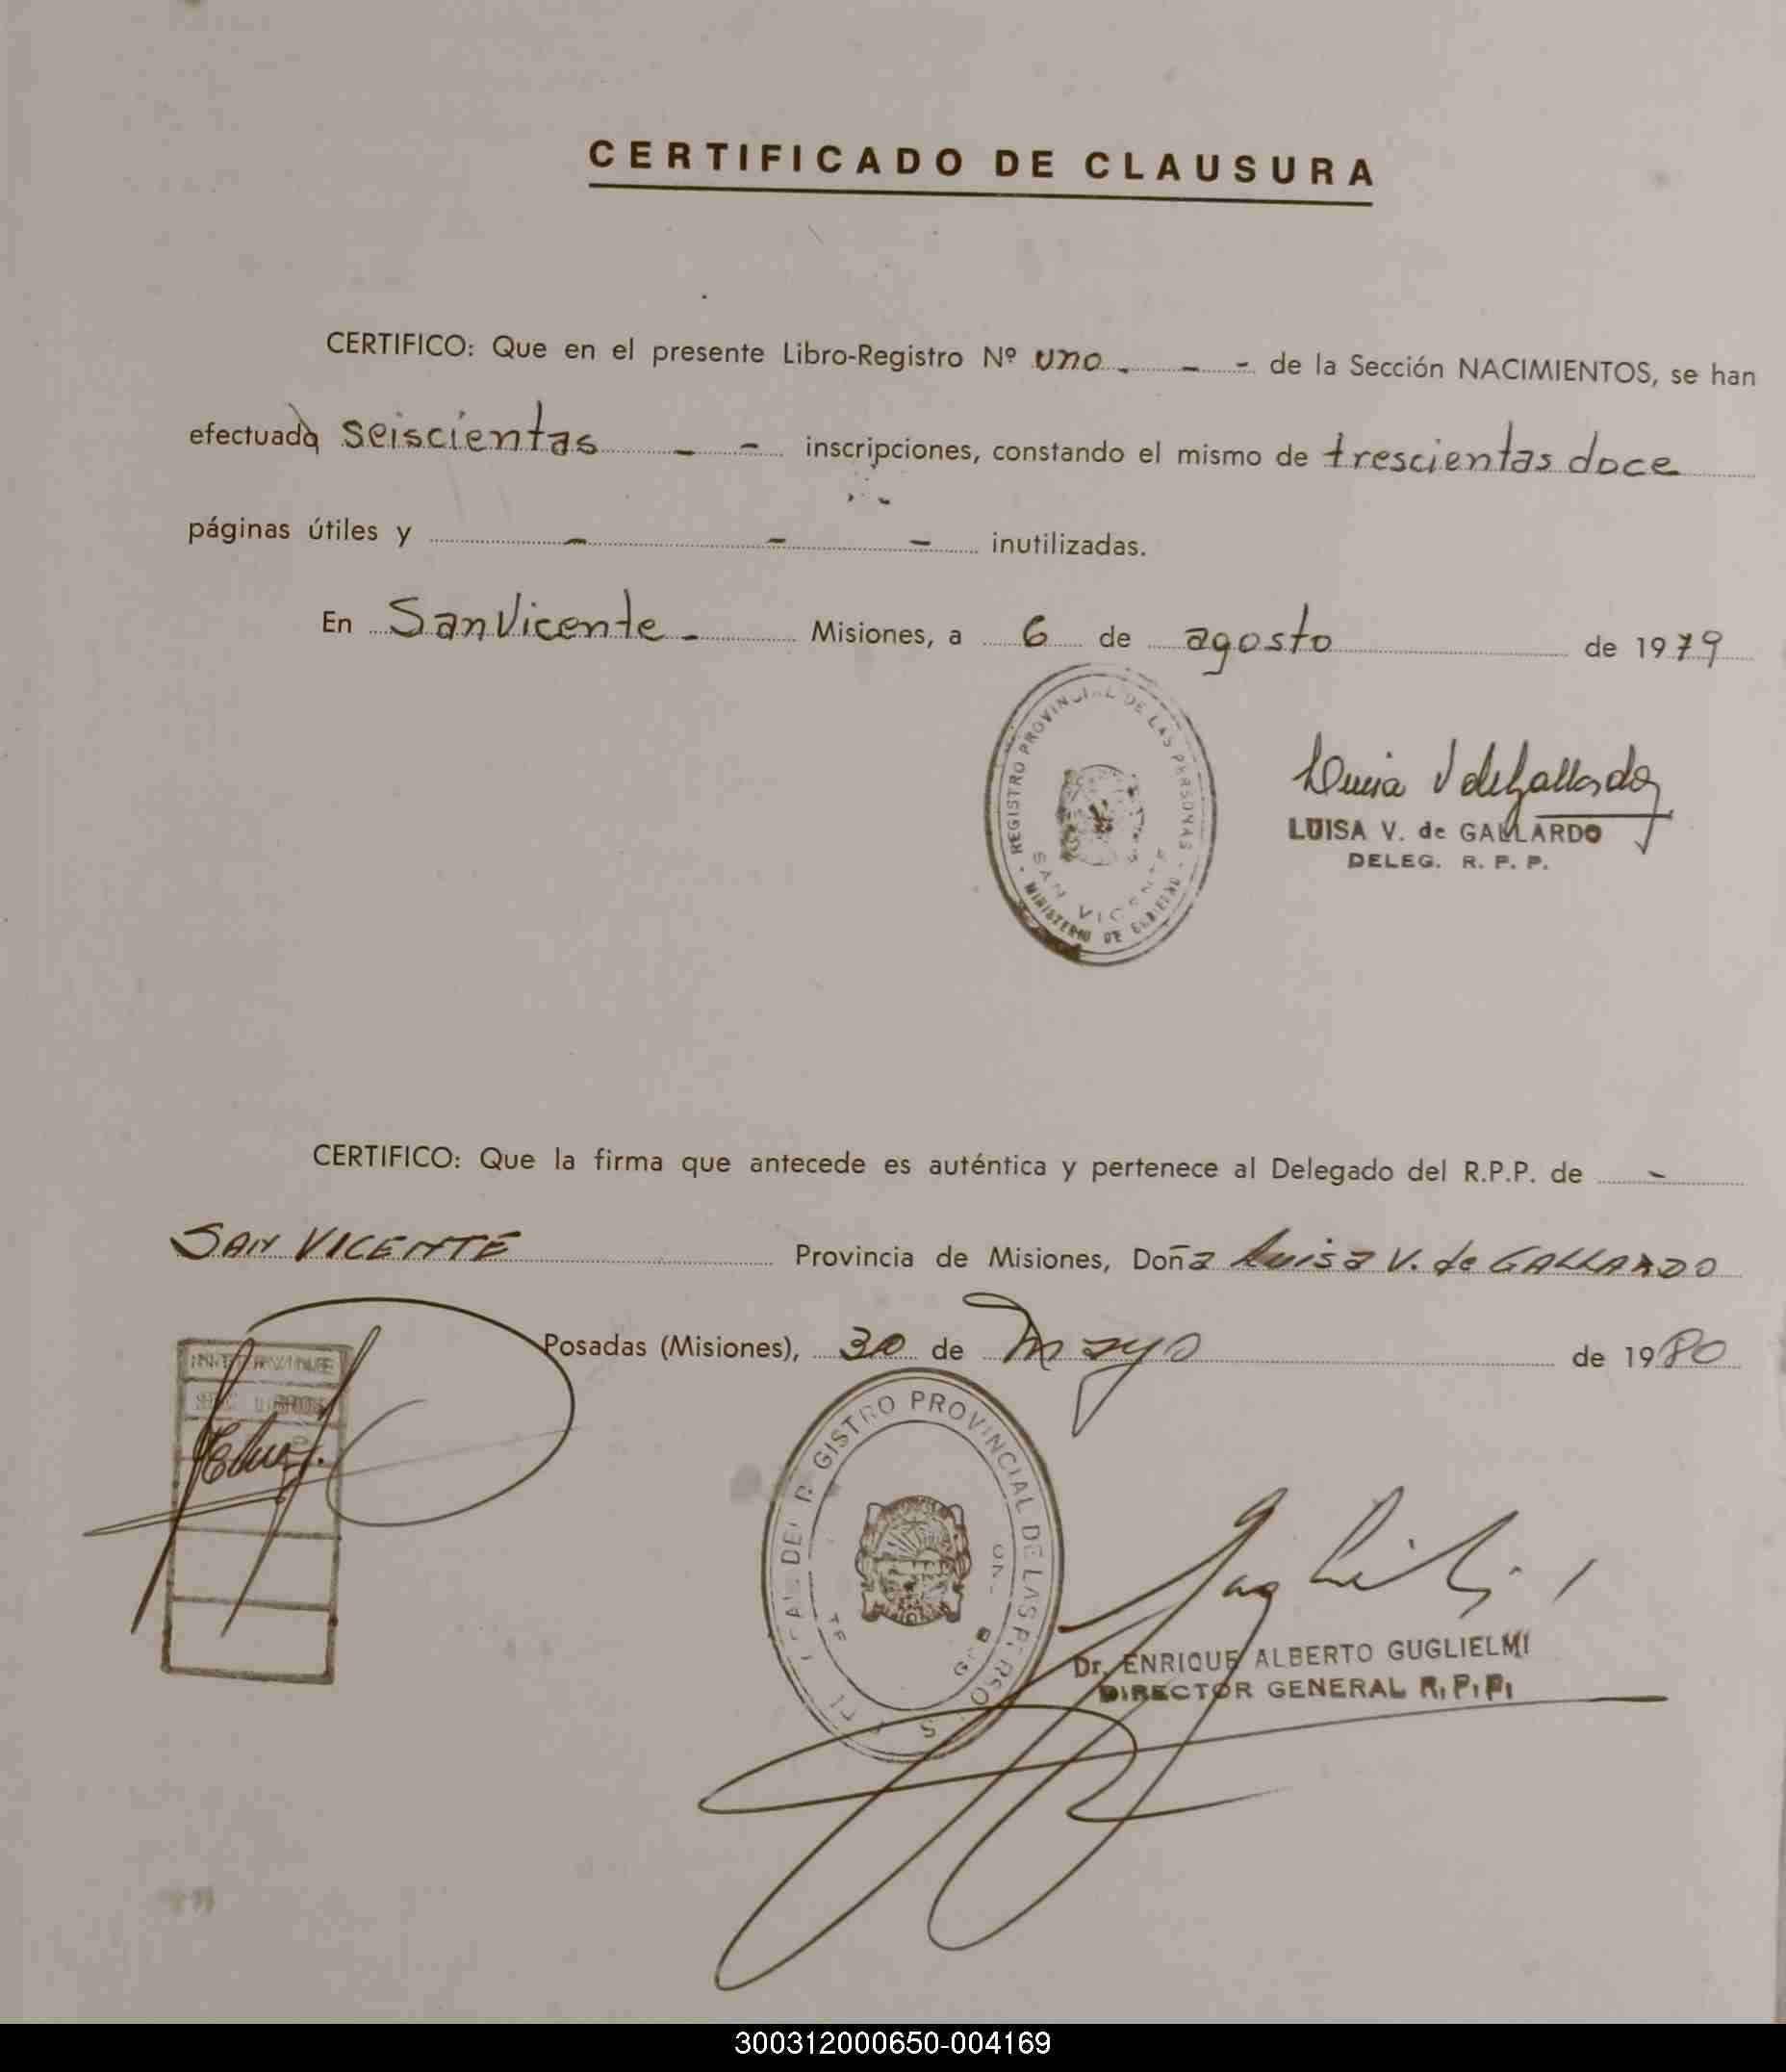 CERTIFICADO DE CLAUSURA
CERTIFICO: Que en el presente Libro-Registro Nº uno. - - de la Sección NACIMIENTOS, se han
efectuada seiscientas - - inscripciones, constando el mismo de trescientas doce
páginas útiles y - - - inutilizadas.
En San Vicente - Misiones, a 6 de agosto de 1979
REGISTRO PROVINCIAL DE LAS PERSONAS
SAN VICENTE
MINISTERIO DE GOBIERNO
Luisa V de Gallardo
LUISA V. de GALLARDO
DELEG. R. P. P.
CERTIFICO: Que la firma que antecede es auténtica y pertenece al Delegado del R.P.P. de -
SAN VICENTE Provincia de Misiones, Doña Luisa V. de GALLARDO
Posadas (Misiones), 30 de Mayo de 1980
PROVINCIAL DE LAS
Dr. ENRIQUE ALBERTO GUGLIELMI
DIRECTOR GENERAL R. P. P.
300312000650-004169